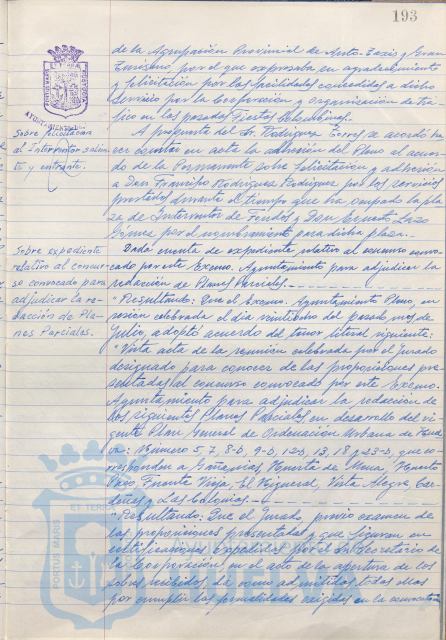 193
de la Agrupación Provincial de Auto-Taxis y Gran
Turismo por el que expresaba su agradecimiento
y felicitación por las facilidades concedidas a dicho
servicio por la Corporación y organización de trá-
fico en las pasadas Fiestas Colombinas.
Sobre felicitación
al Interventor salien-
te y entrante.
A propuesta del Sr. Rodríguez Torres se acordó ha-
cer constar en acta la adhesión del Pleno al acuer-
do de la Permanente sobre felicitación y adhesión
a Don Francisco Rodríguez Rodríguez por los servicios
prestados durante el tiempo que ha ocupado la pla-
za de Interventor de Fondos y Don Ernesto Lazo
Gómez por el nombramiento para dicha plaza.
Sobre expediente
relativo al concur-
so convocado para
adjudicar la re-
dacción de Pla-
nes Parciales.
Dada cuenta de expediente relativo al concurso convo-
cado por este Excmo. Ayuntamiento para adjudicar la
redacción de Planes Parciales.
"Resultando: Que el Excmo. Ayuntamiento Pleno, en
sesión celebrada el día veintiocho del pasado mes de
Julio, adoptó acuerdo del tenor literal siguiente:
"Vista acta de la reunión celebrada por el Jurado
designado para conocer de las proposiciones pre-
sentadas al concurso convocado por este Excmo.
Ayuntamiento para adjudicar la redacción de
los siguientes Planes Parciales en desarrollo del vi-
gente Plan General de Ordenación Urbana de Huel-
va: Número 5, 7, 8-D, 9-D, 12-D, 13, 18 y 23-D, que co-
rresponden a Huerta de Mena,
Fuente Vieja, El Higueral, Vista Alegre, Car-
deñas y Las Colonias.
"Resultando: Que el Jurado, previo examen de
las proposiciones presentadas y que figuran en
certificaciones expedidas por el Sr. Secretario de
la Corporación, en el acto de la apertura de los
sobres recibidos, dá como admitidos todas ellas
por cumplir las formalidades exigidas en la convocatoria
PORTUS MARIS
ET TERRAE